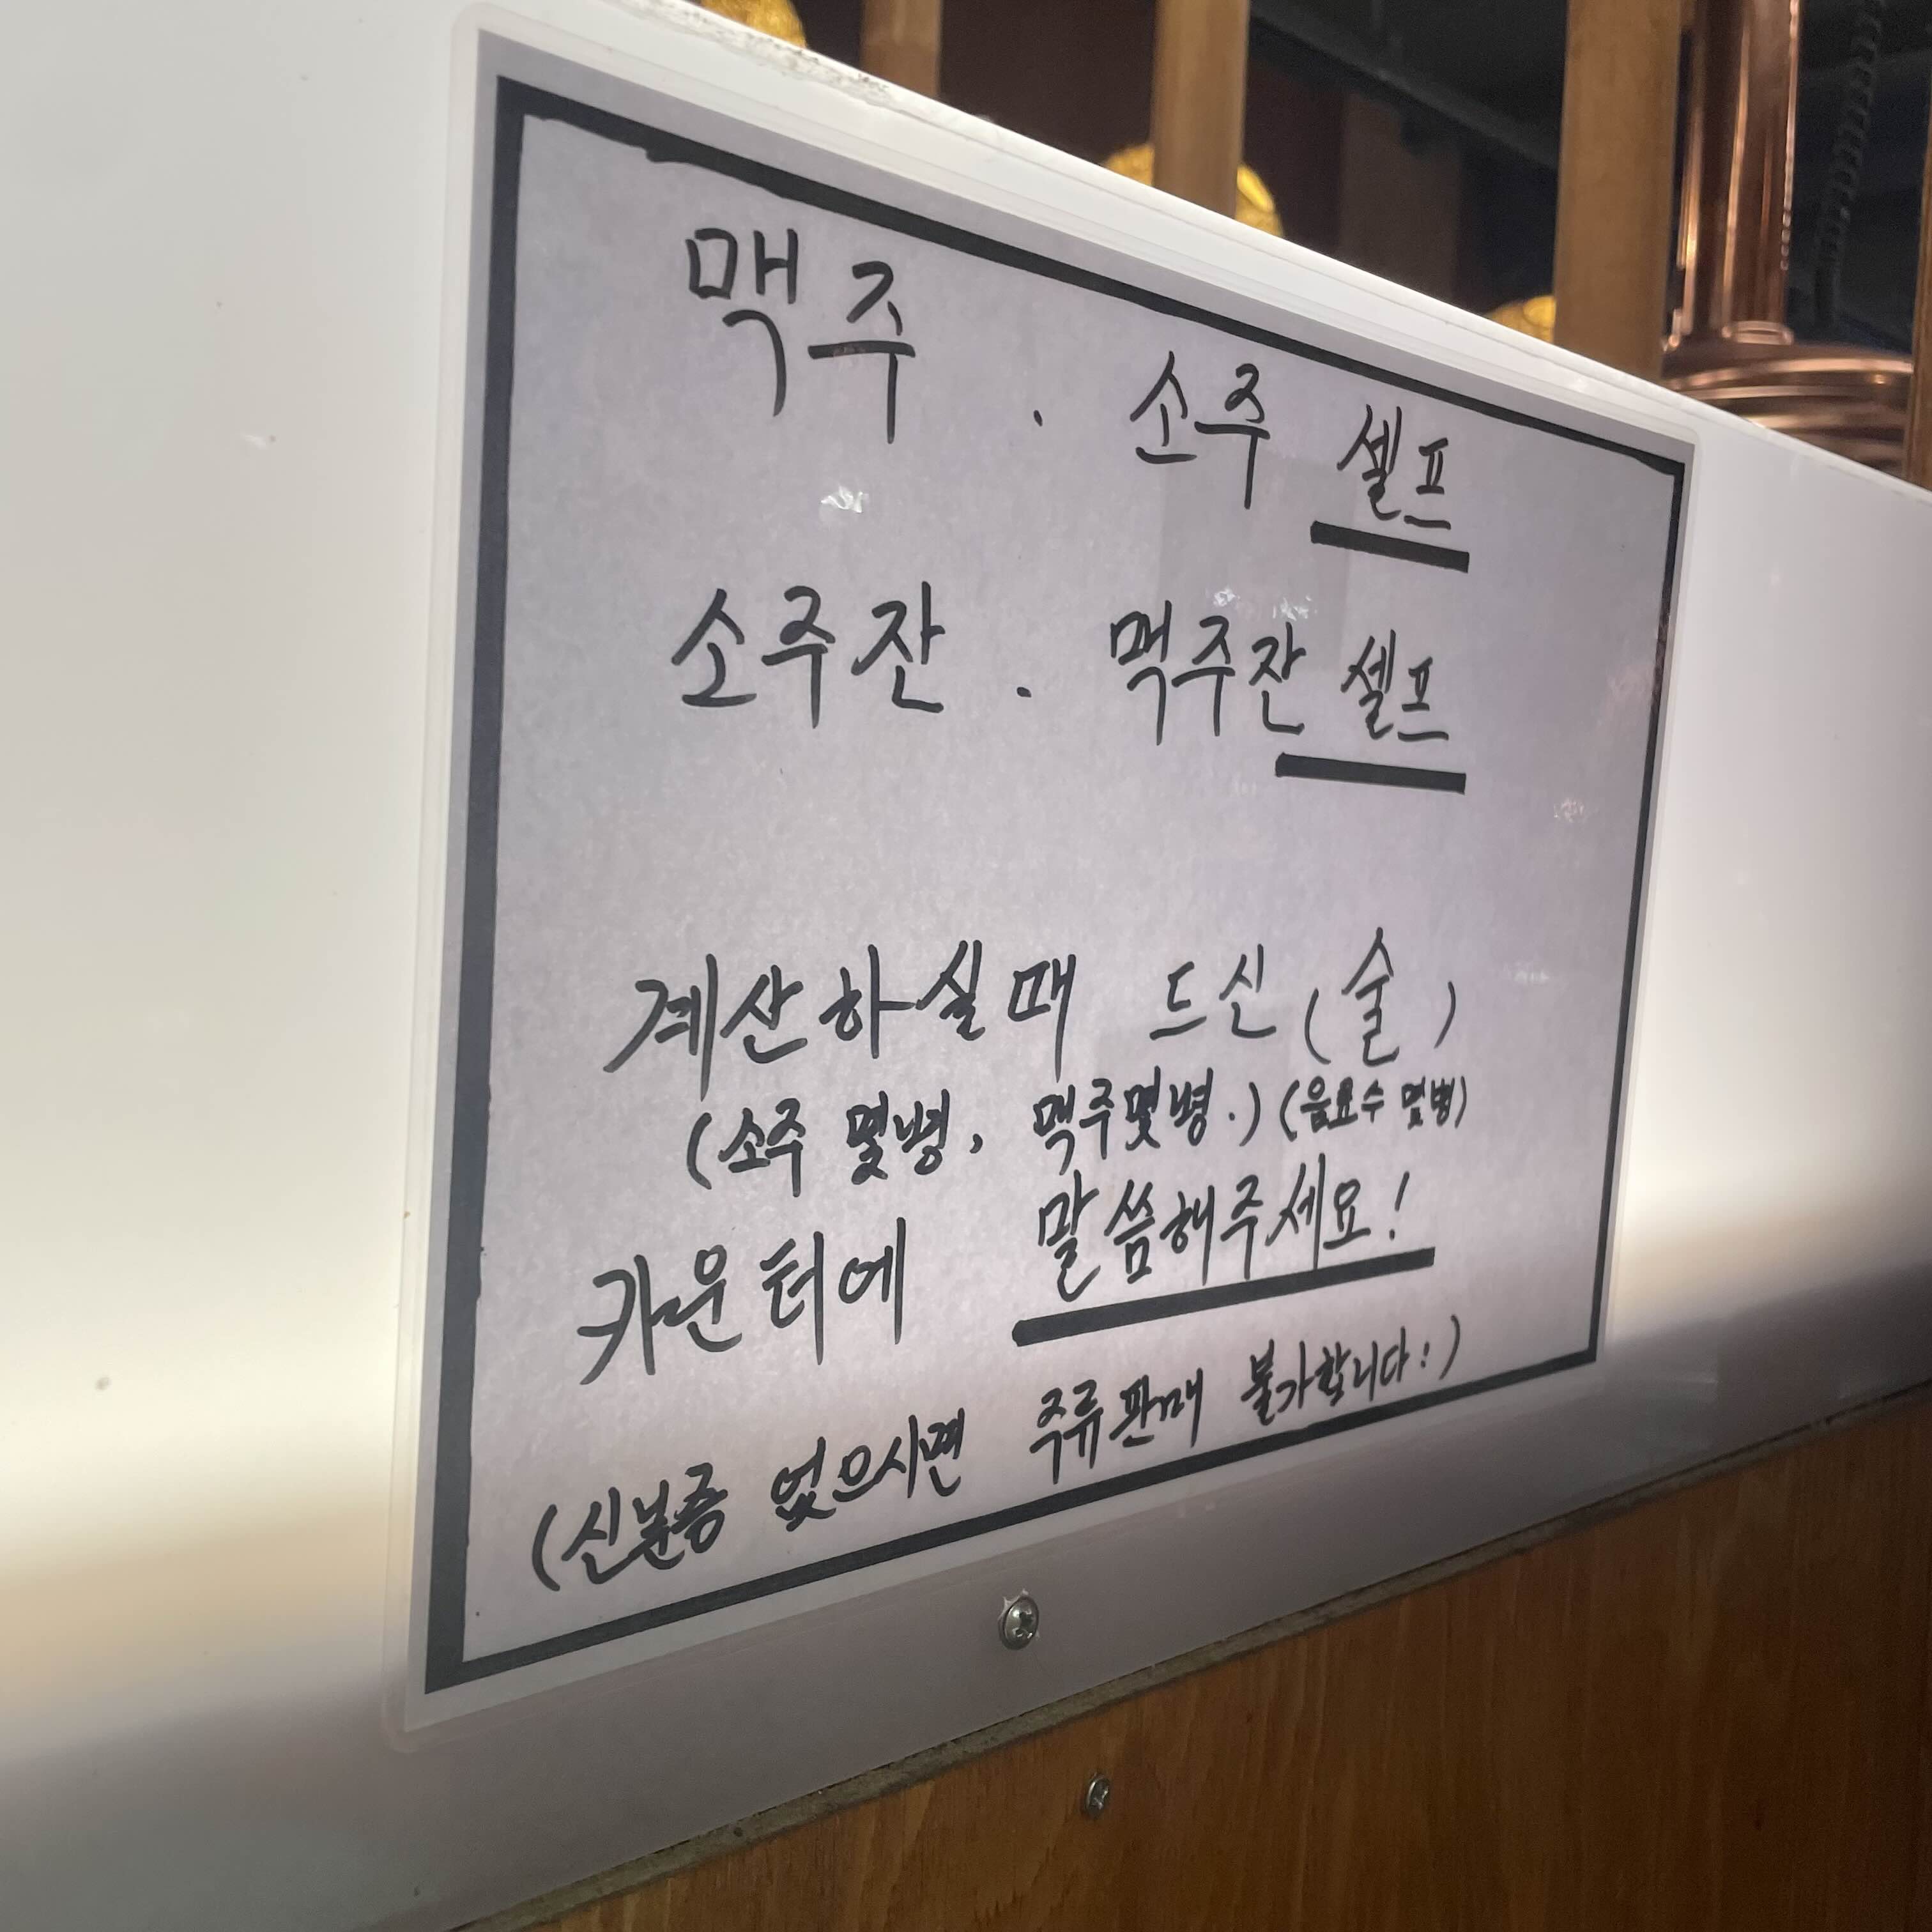 맥주 . 소주 셀프
소주잔 . 맥주잔 셀프
계산하실때 드신 (술)
(소주 몇병, 맥주몇병.) (음료수 몇병)
카운터에 말씀해주세요!
(신분증 없으시면 주류판매 불가합니다:)